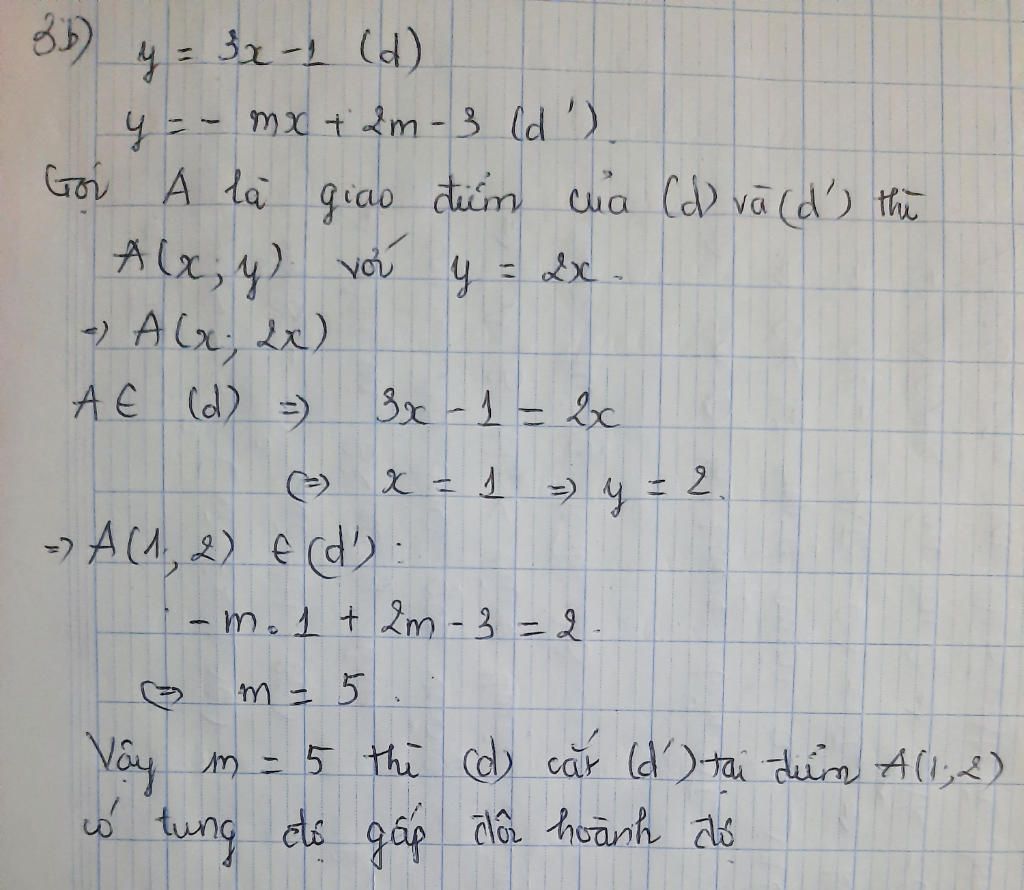 3b) y = 3x - 1 (d)
y = - mx + 2m - 3 (d').
Gọi A là giao điểm của (d) và (d') thì
A(x; y) với y = 2x.
=> A(x; 2x)
A ∈ (d) => 3x - 1 = 2x
<=> x = 1 => y = 2.
=> A(1; 2) ∈ (d') :
- m . 1 + 2m - 3 = 2.
<=> m = 5.
Vậy m = 5 thì (d) cắt (d') tại điểm A(1; 2)
có tung độ gấp đôi hoành độ